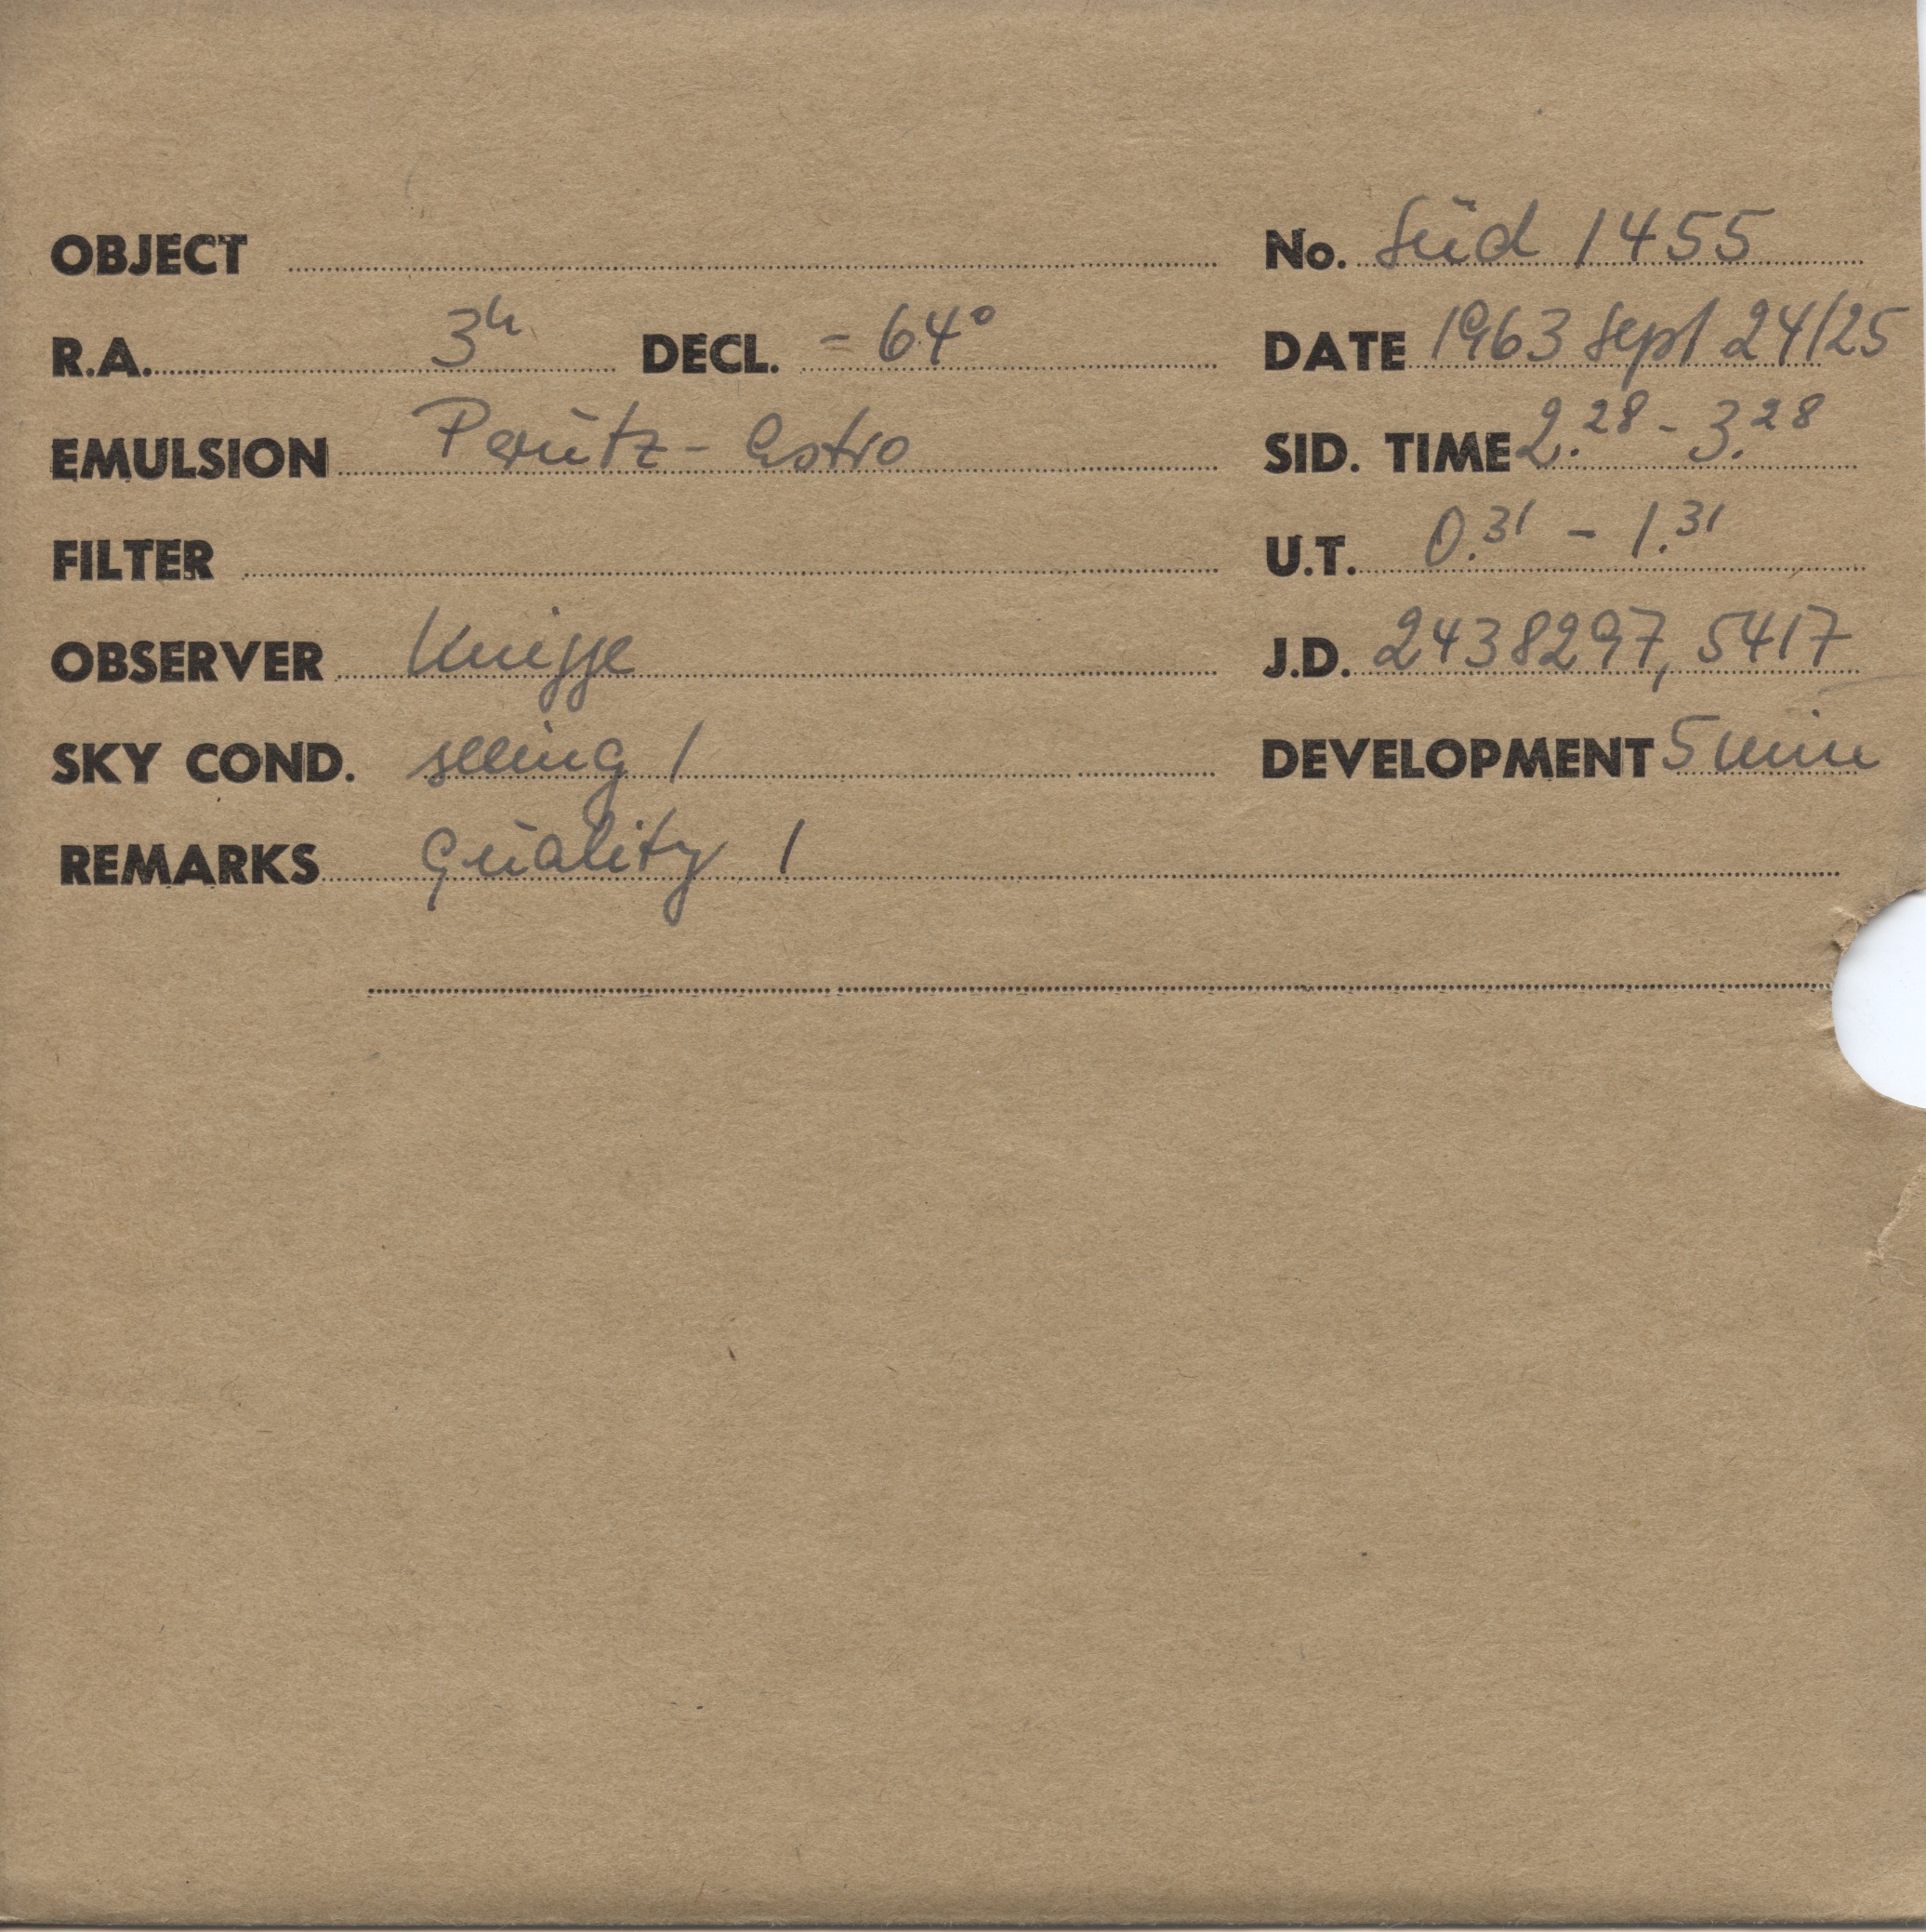 OBJECT No. Süd 1455
R.A. 3h DECL. - 64°
DATE 1963 Sept 24/25
EMULSION Perutz - Astro
SID. TIME 2.28 - 3.28
FILTER
U.T. 0.31 - 1.31
OBSERVER Knigge
J.D. 2438297,5417
SKY COND. seeing 1
DEVELOPMENT 5 min
REMARKS Quality 1